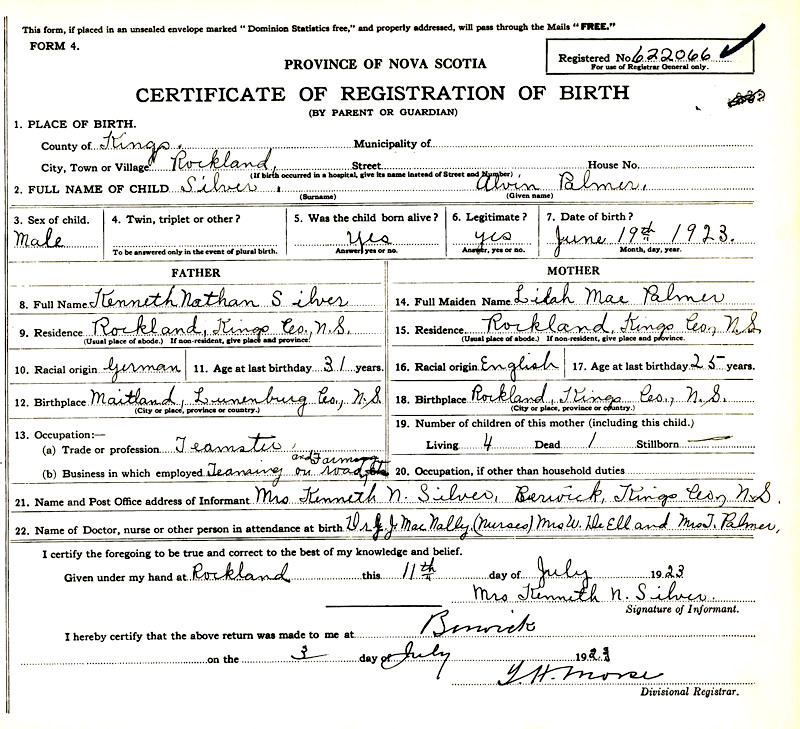 This form, if placed in an unsealed envelope marked "Dominion Statistics free," and properly addressed, will pass through the Mails "FREE."
FORM 4.
Registered No. 622066
For use of Registrar General only.
PROVINCE OF NOVA SCOTIA
CERTIFICATE OF REGISTRATION OF BIRTH
(BY PARENT OR GUARDIAN)
1. PLACE OF BIRTH.
County of Kings. Municipality of
City, Town or Village Rockland, Street House No.
(If birth occurred in a hospital, give its name instead of Street and Number)
2. FULL NAME OF CHILD Silver, Alvin Palmer,
(Surname) (Given name)
3. Sex of child. 4. Twin, triplet or other? 5. Was the child born alive? 6. Legitimate? 7. Date of birth?
Male Yes yes June 19th 1923.
To be answered only in the event of plural birth. Answer, yes or no. Answer, yes or no. Month, day, year.
FATHER MOTHER
8. Full Name Kenneth Nathan Silver 14. Full Maiden Name Lidah Mae Palmer
9. Residence Rockland, Kings Co., N.S. 15. Residence Rockland, Kings Co., N.S
(Usual place of abode.) If non-resident, give place and province. (Usual place of abode.) If non-resident, give place and province.
10. Racial origin German 11. Age at last birthday 31 years. 16. Racial origin English 17. Age at last birthday 25 years.
12. Birthplace Maitland, Lunenburg Co., N.S 18. Birthplace Rockland, Kings Co., N.S.
(City or place, province or country.) (City or place, province or country.)
13. Occupation:— 19. Number of children of this mother (including this child.)
(a) Trade or profession Teamster, Living 4 Dead 1 Stillborn —
and Farming
(b) Business in which employed Teaming on road, 20. Occupation, if other than household duties
21. Name and Post Office address of Informant Mrs Kenneth N. Silver, Berwick, Kings Co., N.S.
22. Name of Doctor, nurse or other person in attendance at birth Dr J. J. MacNally (Nurses) Mrs W. De Ell and Mrs T. Palmer,
I certify the foregoing to be true and correct to the best of my knowledge and belief.
Given under my hand at Rockland this 11th day of July 1923
Mrs Kenneth N. Silver.
Signature of Informant.
I hereby certify that the above return was made to me at Berwick
on the 3 day of July 1923
Y. H. Morse
Divisional Registrar.